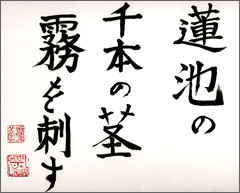 蓮池の
千本の茎
霧を刺す